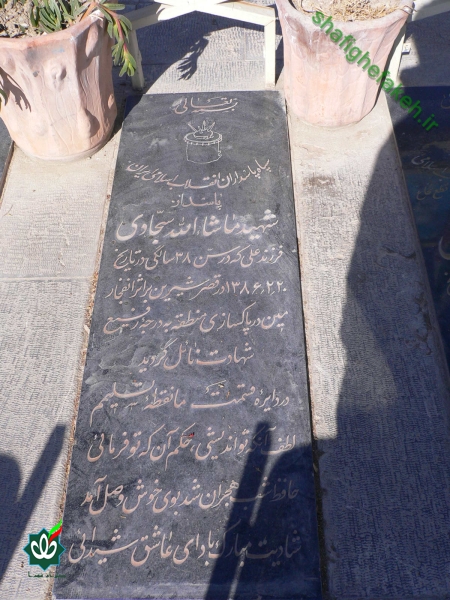 بسمه تعالی
سپاه پاسداران انقلاب اسلامی ایران
پاسدار
شهید ماشاءالله سجادی
فرزند علی که در سن ۳۸ سالگی در تاریخ
۱۳۸۶٫۲٫۲۰ در قصر شیرین بر اثر انفجار
مین در پاکسازی منطقه به درجه رفیع
شهادت نائل گردید
در دایره قسمت ما نقطه تسلیمیم
لطف آنچه تو اندیشی، حکم آن که تو فرمائی
حافظ شب هجران شد بوی خوش وصل آمد
شادیت مبارک باد ای عاشق شیدائی
shafighefakeh.ir